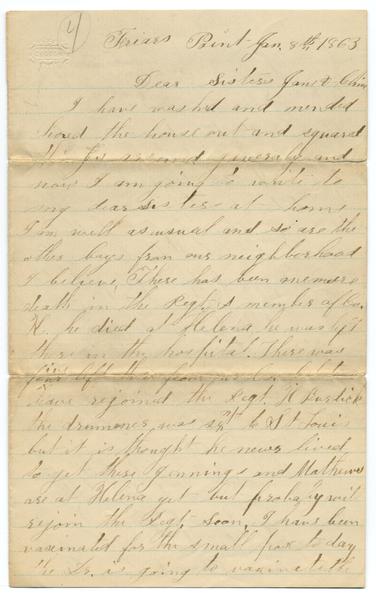 4
Friars Point Jan. 8th, 1863
Dear Sisters Janet &
I have washed and mended
hoed the house out and squared
things around generaly and
now I am going to write to
my dear sisters at home
I'm well as usual and so are the
other boys from our neighborhood
I believe, There has been one more
death in the Regt, a member of Co.
H. he died at Helena he was left
there in the hospital. There was
four left there from our Co. but
have rejoined the Regt. K Burdick
the drummer was sent to St Louis
but it is thought he never lived
to get there Jennings and Mathews
are at Helena yet but probaly will
rejoin the Regt. soon, I have been
vaxinated for the small pox to day
the Dr. is going to vaxinate the